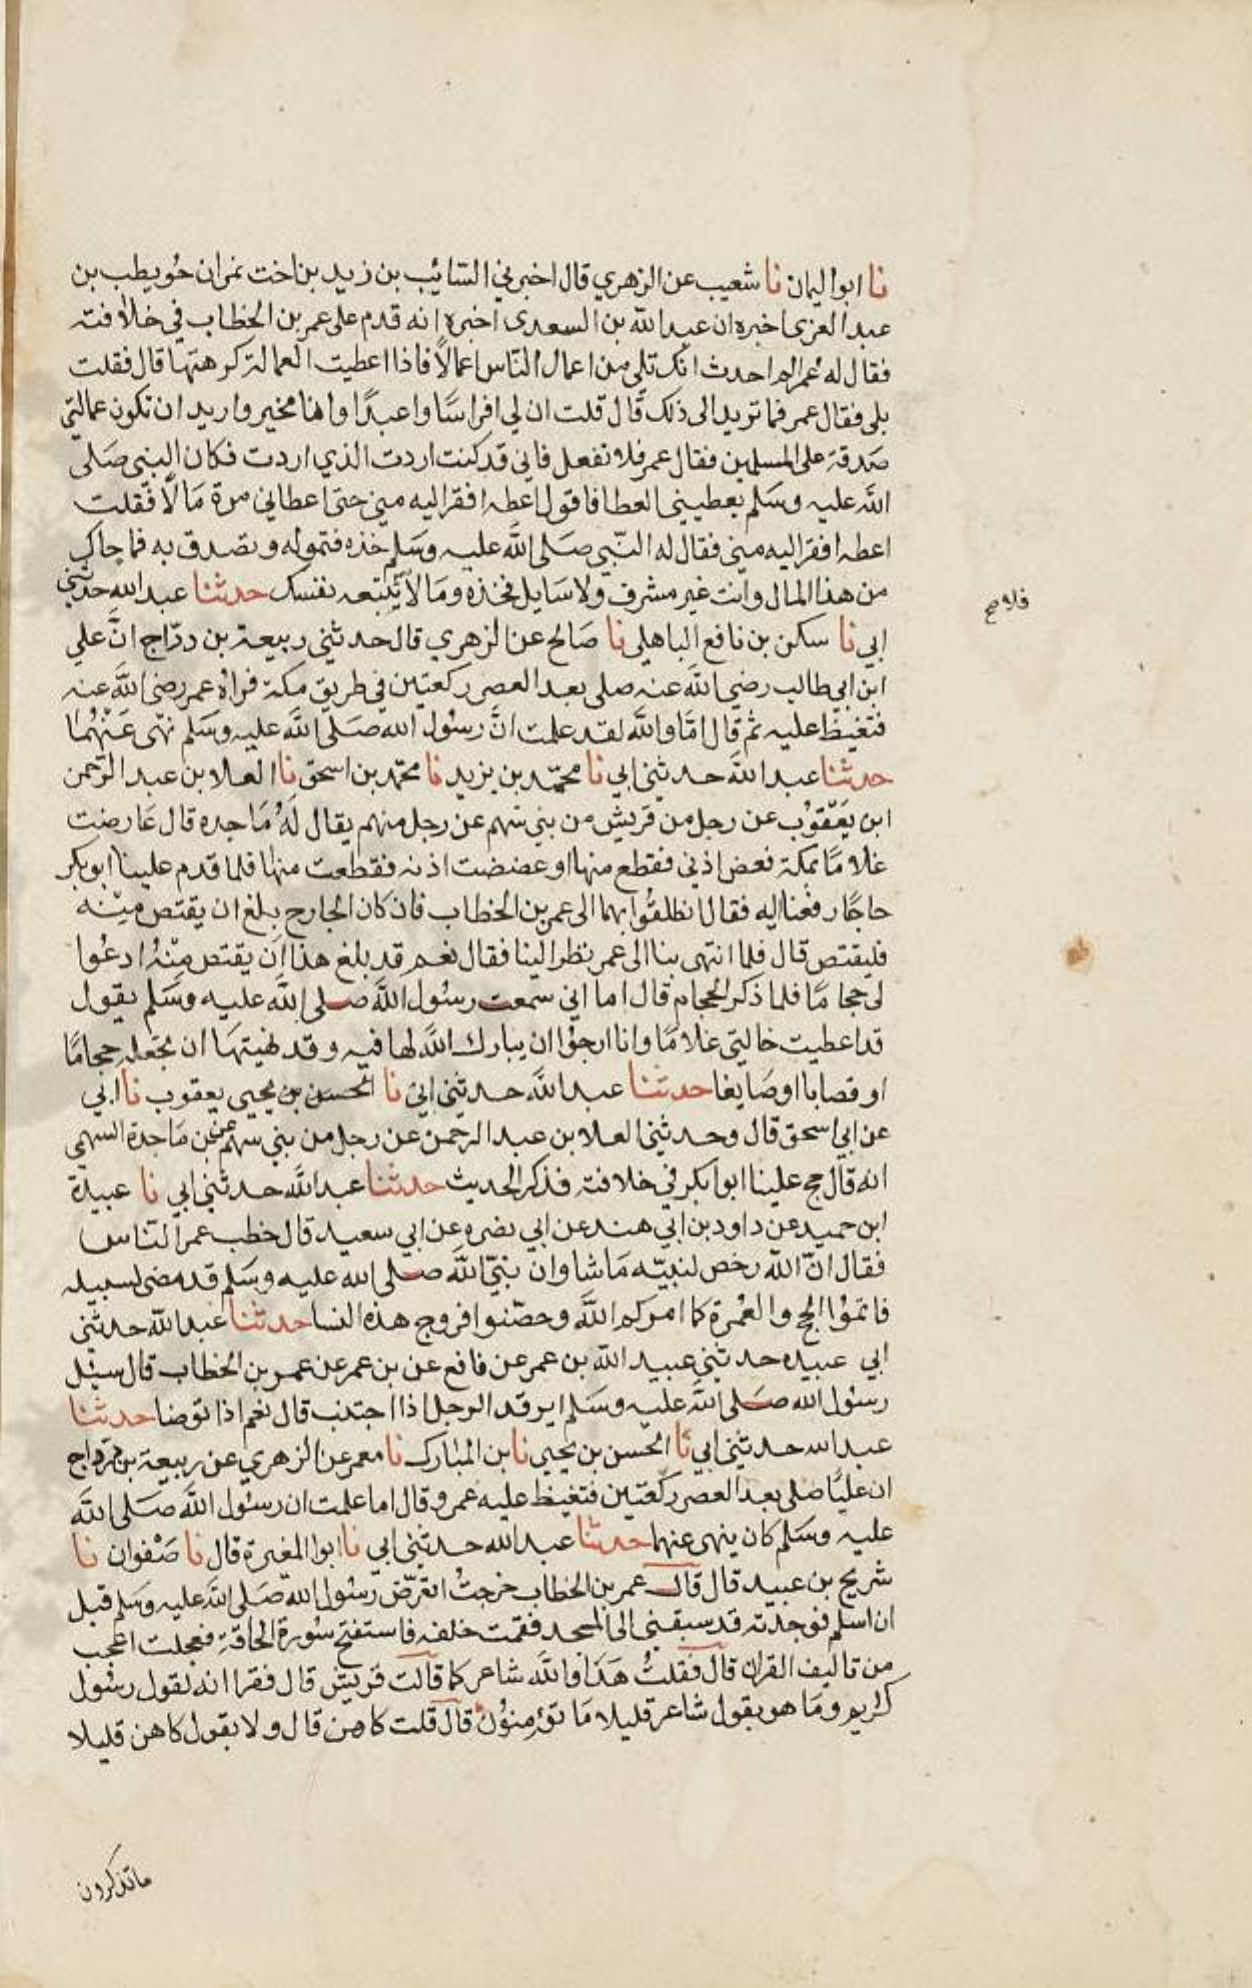 نا ابو اليمان نا شعيب عن الزهري قال اخبرني السائب بن زيد بن اخت نمر ان حويطب بن
عبد العزى اخبره ان عبد الله بن السعدى اخبره انه قدم على عمر بن الخطاب في خلافته
فقال له عمر الم احدث انك تلي من اعمال الناس اعمالا فاذا اعطيت العمالة كرهتها قال فقلت
بلى فقال عمر فما تريد الى ذلك قال قلت ان لي افراسًا واعبدًا وانا بخير واريد ان تكون عمالتي
صدقة على المسلمين فقال عمر فلا تفعل فاني قد كنت اردت الذي اردت فكان النبي صلى
الله عليه وسلم يعطيني العطا فاقول اعطه افقر اليه مني حتى اعطاني مرة مالًا فقلت
اعطه افقر اليه مني فقال له النبي صلى الله عليه وسلم خذه فتموله وتصدق به فما جاك
من هذا المال وانت غير مشرف ولا سايل فخذه ومالا تتبعه نفسك حدثنا عبد الله حدثني
فلا صح
ابي نا سكن بن نافع الباهلي نا صالح عن الزهري قال حدثني ربيعة بن درّاج انّ علي
ابن ابي طالب رضي الله عنه صلى بعد العصر ركعتين في طريق مكة فراه عمر رضي الله عنه
فتغيظ عليه ثم قال امّا والله لقد علمت انّ رسول الله صلى الله عليه وسلم نهى عنهما
حدثنا عبد الله حدثني ابي نا محمّد بن يزيد نا محمّد بن اسحق نا العلا بن عبد الرحمن
ابن يعقوب عن رجل من قريش من بني سهم عن رجل منهم يقال له ماجده قال عارضت
غلامًا بمكة فعض اذني فقطع منها او عضضت اذنه فقطعت منها فلما قدم علينا ابو بكر
حاجًا رفعنا اليه فقال انطلقوا بهما الى عمر بن الخطاب فان كان الجارح بلغ ان يقتص منه
فليقتص قال فلما انتهى بنا الى عمر نظر الينا فقال نعم قد بلغ هذا ان يقتص منه ادعوا
لى حجامًا فلما ذكر الحجام قال اما اني سمعت رسول الله صلى الله عليه وسلم يقول
قد اعطيت خالتي غلامًا وانا ارجوا ان يبارك الله لها فيه وقد نهيتها ان تجعله حجامًا
او قصابا او صايغا حدثنا عبد الله حدثني ابي نا الحسن بن يحيى يعقوب نا ابي
عن ابي اسحق قال وحدثني العلا بن عبد الرحمن عن رجل من بني سهم عن بن ماجدة السهمي
انه قال حج علينا ابوا بكر في خلافته فذكر الحديث حدثنا عبد الله حدثني ابي نا عبيدة
ابن حميد عن داود بن ابي هند عن ابي نضره عن ابي سعيد قال خطب عمر الناس
فقال انّ الله رخص لنبيّه ما شا وان نبيّ الله صلى الله عليه وسلم قد مضى لسبيله
فاتموا الحج والعمرة كما امركم الله وحصّنوا فروج هذه النسا حدثنا عبد الله حدثني
ابي عبيده حدثني عبيد الله بن عمر عن نافع عن بن عمر عن عمر بن الخطاب قال سئل
رسول الله صلى الله عليه وسلم ايرقد الرجل اذا اجتنب قال نعم اذا توضا حدثنا
عبد الله حدثني ابي نا الحسن بن يحيى نا بن المبارك نا معمر عن الزهري عن ربيعة بن درّاج
ان عليًّا صلى بعد العصر ركعتين فتغيظ عليه عمر وقال اما علمت ان رسول الله صلى الله
عليه وسلم كان ينهى عنهما حدثنا عبد الله حدثني ابي نا ابوا المغيرة قال نا صفوان نا
شريح بن عبيد قال قال عمر بن الخطاب خرجت اتعرّض رسول الله صلى الله عليه وسلم قبل
ان اسلم فوجدته قد سبقني الى المسجد فقمت خلفه فاستفتح سورة الحاقة فجعلت اعجب
من تاليف القران قال فقلت هذا والله شاعر كما قالت قريش قال فقرا انه لقول رسول
كريم وما هو بقول شاعر قليلا ما تؤمنون قال قلت كاهن قال ولا بقول كاهن قليلا
ما تذكرون